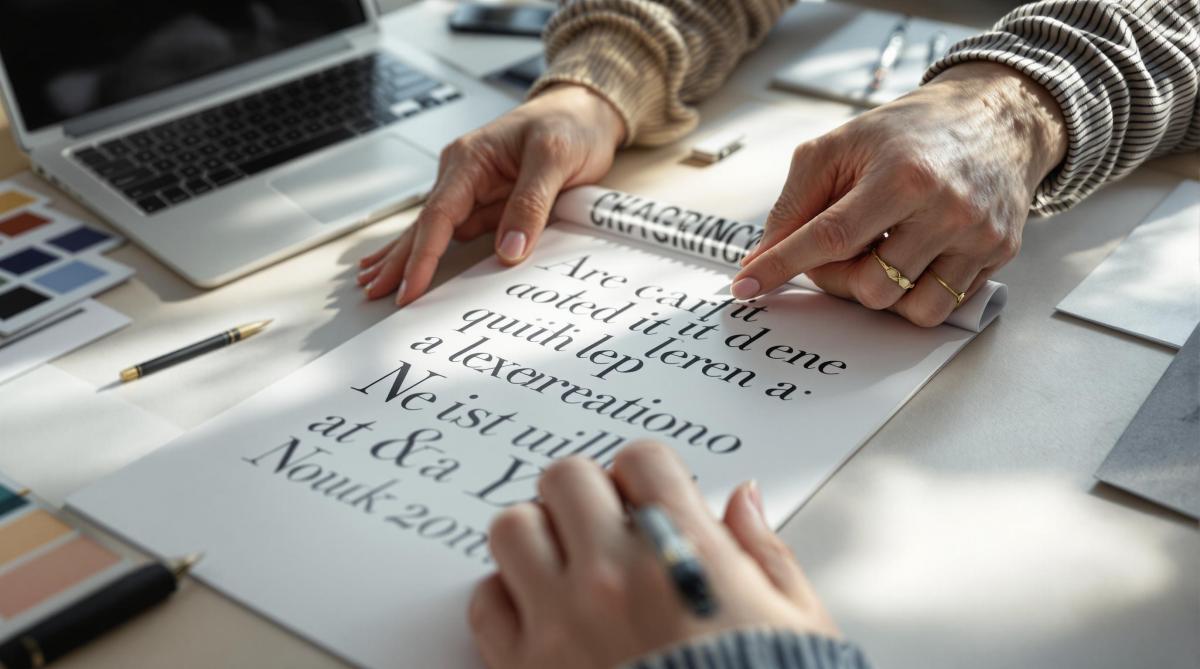 CHAGRING
Are carfit
aoted it it d ene
quiih lep leren a·
a lexereationo
Ne ist uill
at &a
Nouk 2on